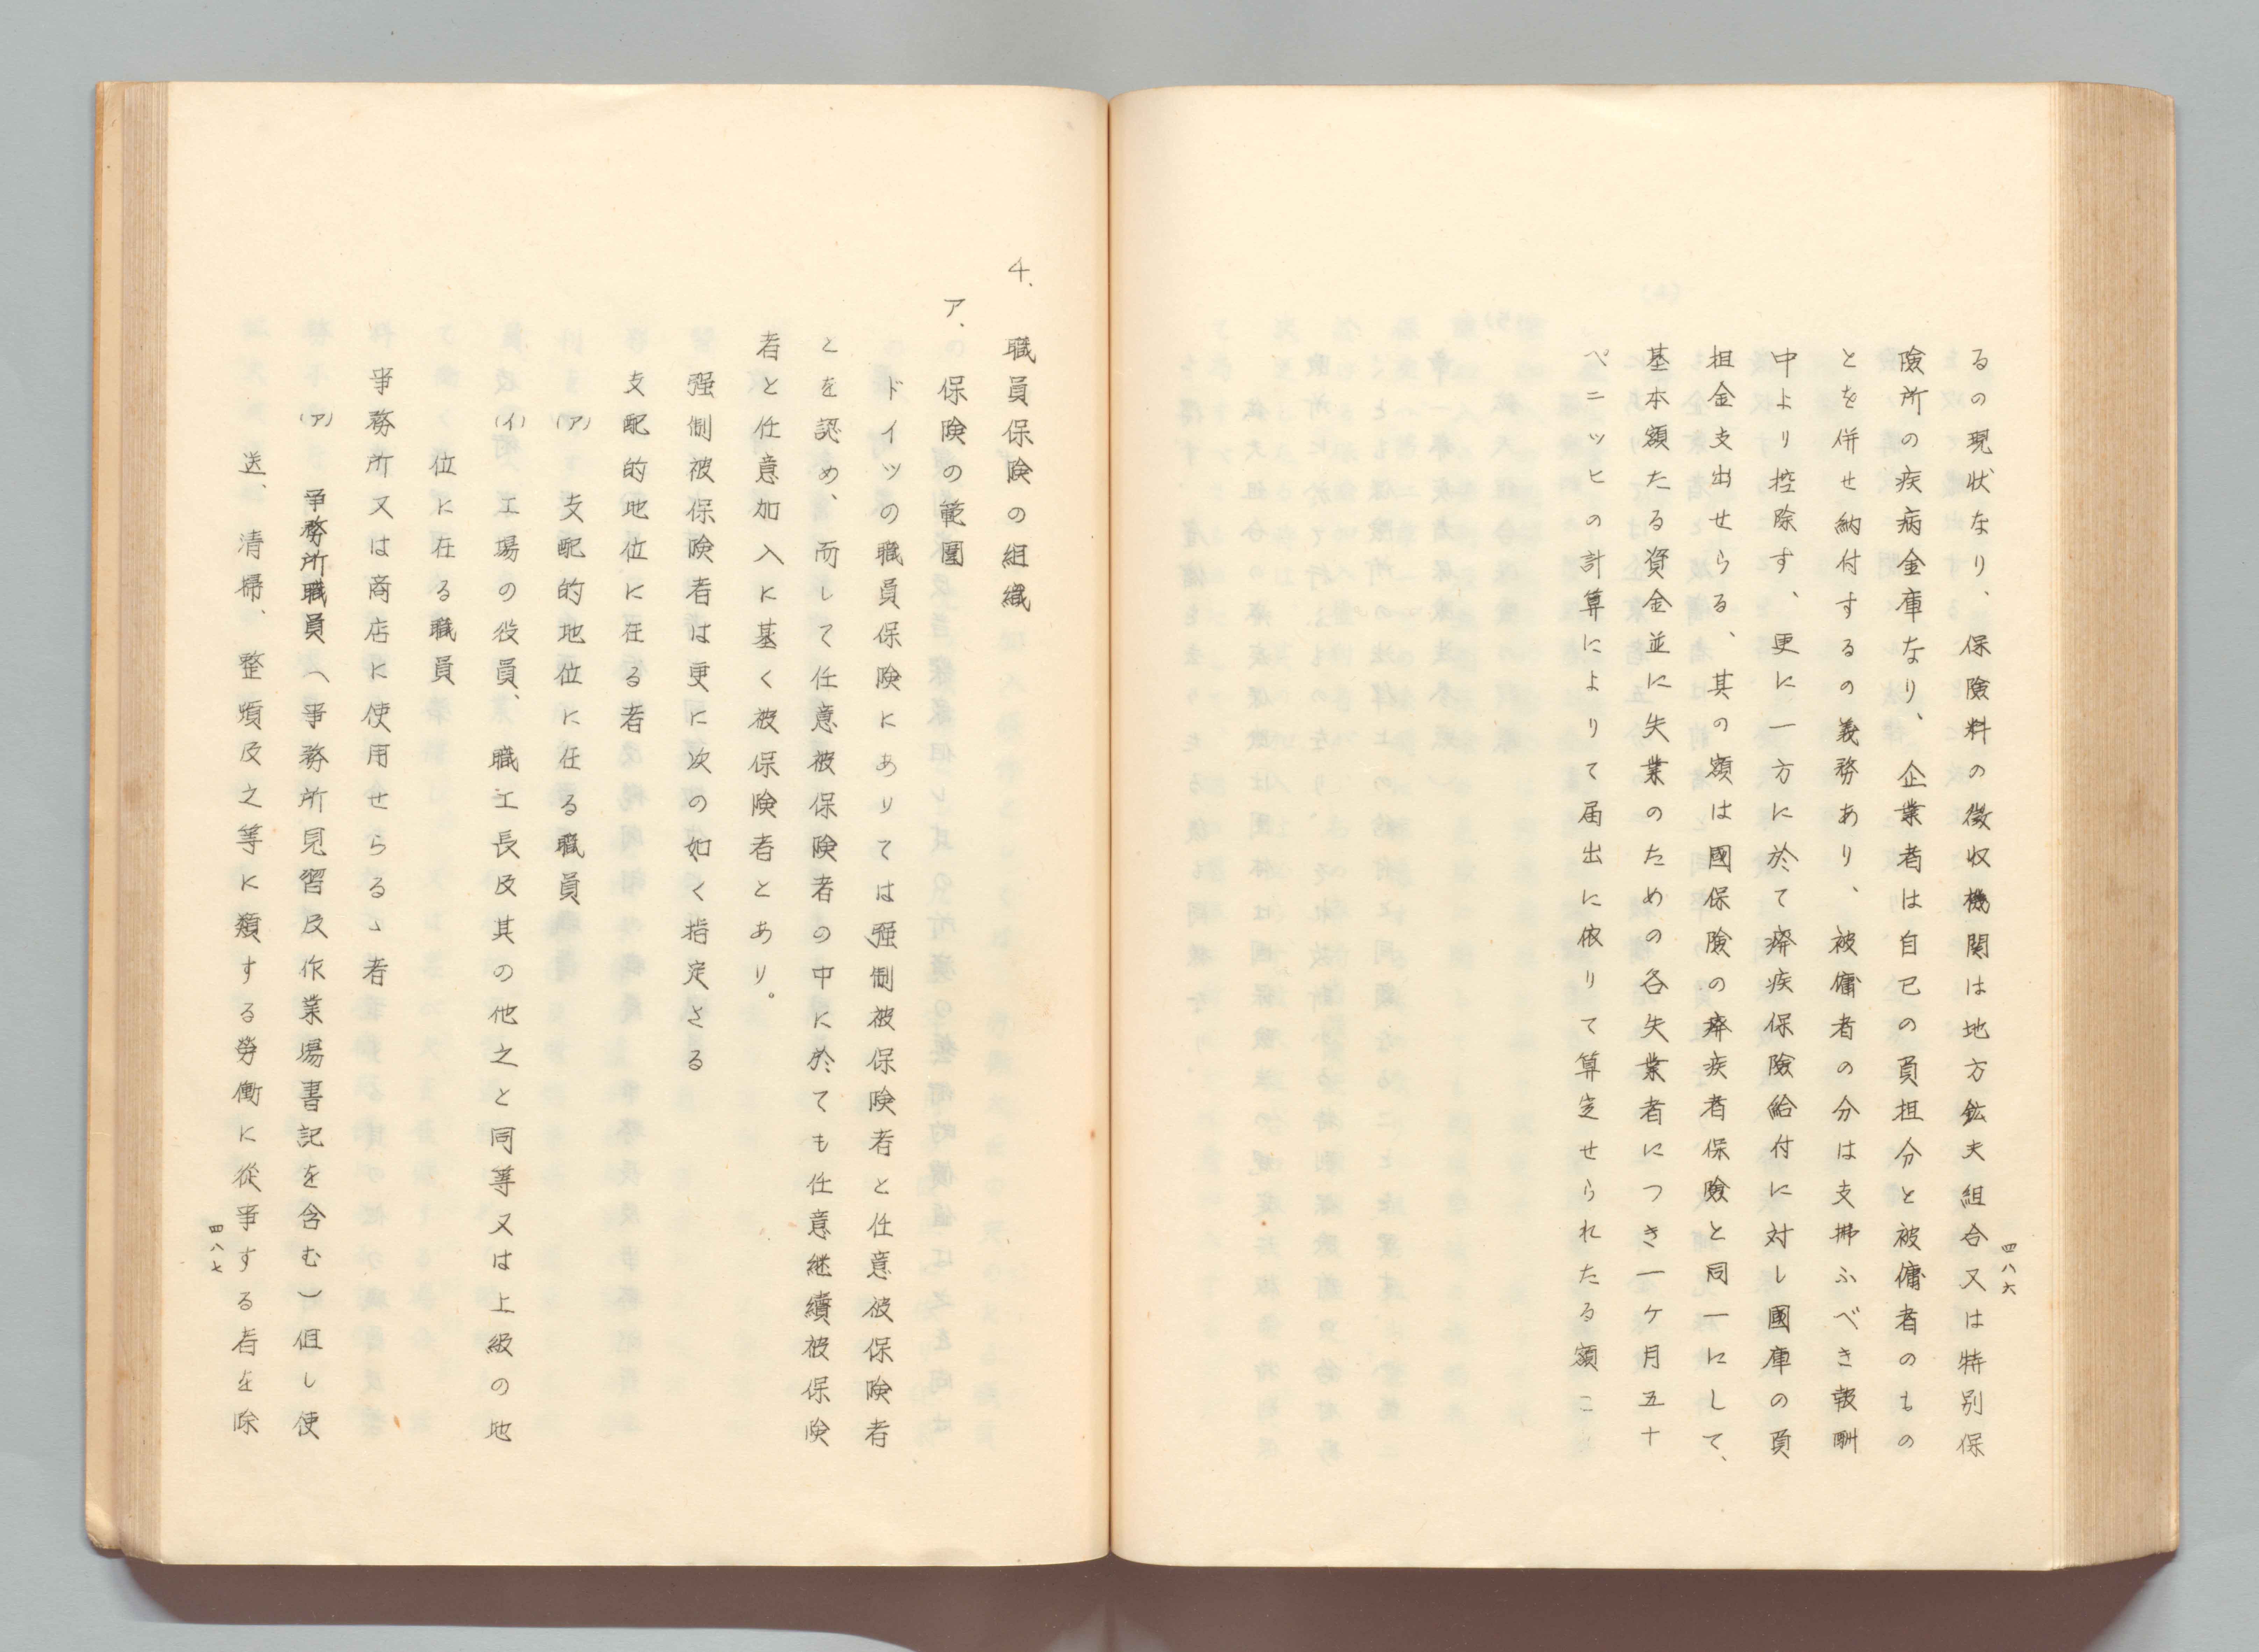 四八六
るの現状なり、保險料の徴収機関は地方鉱夫組合又は特別保
險所の疾病金庫なり、企業者は自已の負担分と被傭者のもの
とを併せ納付するの義務あり、被傭者の分は支拂ふべき報酬
中より控除す、更に一方に於て癈疾保險給付に対し國庫の負
担金支出せらる、其の額は國保險の癈疾者保險と同一にして、
基本額たる資金並に失業のための各失業者につき一ケ月五十
ペニツヒの計算によりて届出に依りて算定せられたる額こ
4、職員保険の組織
ア、保険の範圍
ドイツの職員保険にありては强制被保険者と任意被保険者
とを認め、而して任意被保険者の中に於ても任意継續被保険
者と任意加入に基く被保険者とあり。
强制被保険者は更に次の如く指定さる
支配的地位に在る者
(ア)支配的地位に在る職員
(イ)工場の役員、職工長及其の他之と同等又は上級の地
位に在る職員
事務所又は商店に使用せらるゝ者
(ア)事務所職員(事務所見習及作業場書記を含む)但し使
送、清掃、整頓及之等に類する勞働に從事する者を除
四八七